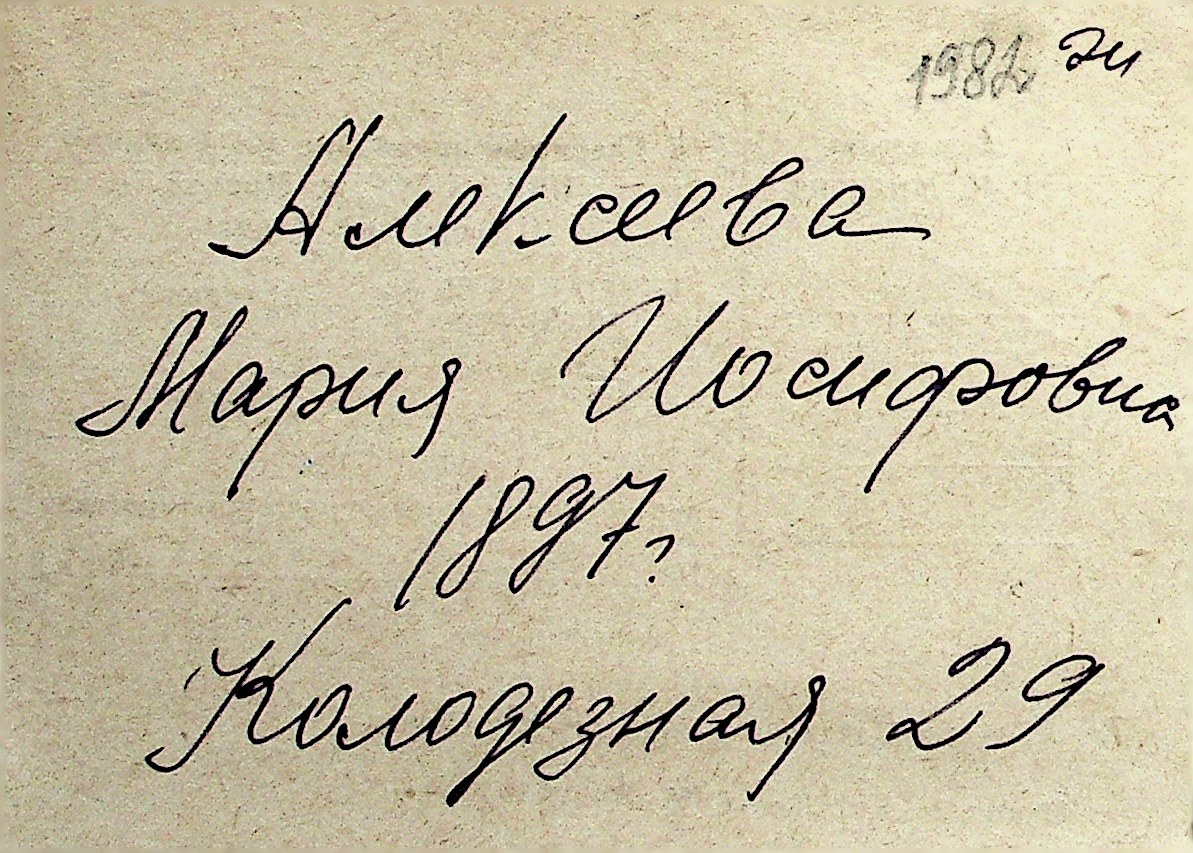 1982 эи
Алексеева
Мария Иосифовна
1897г
Колодезная 29